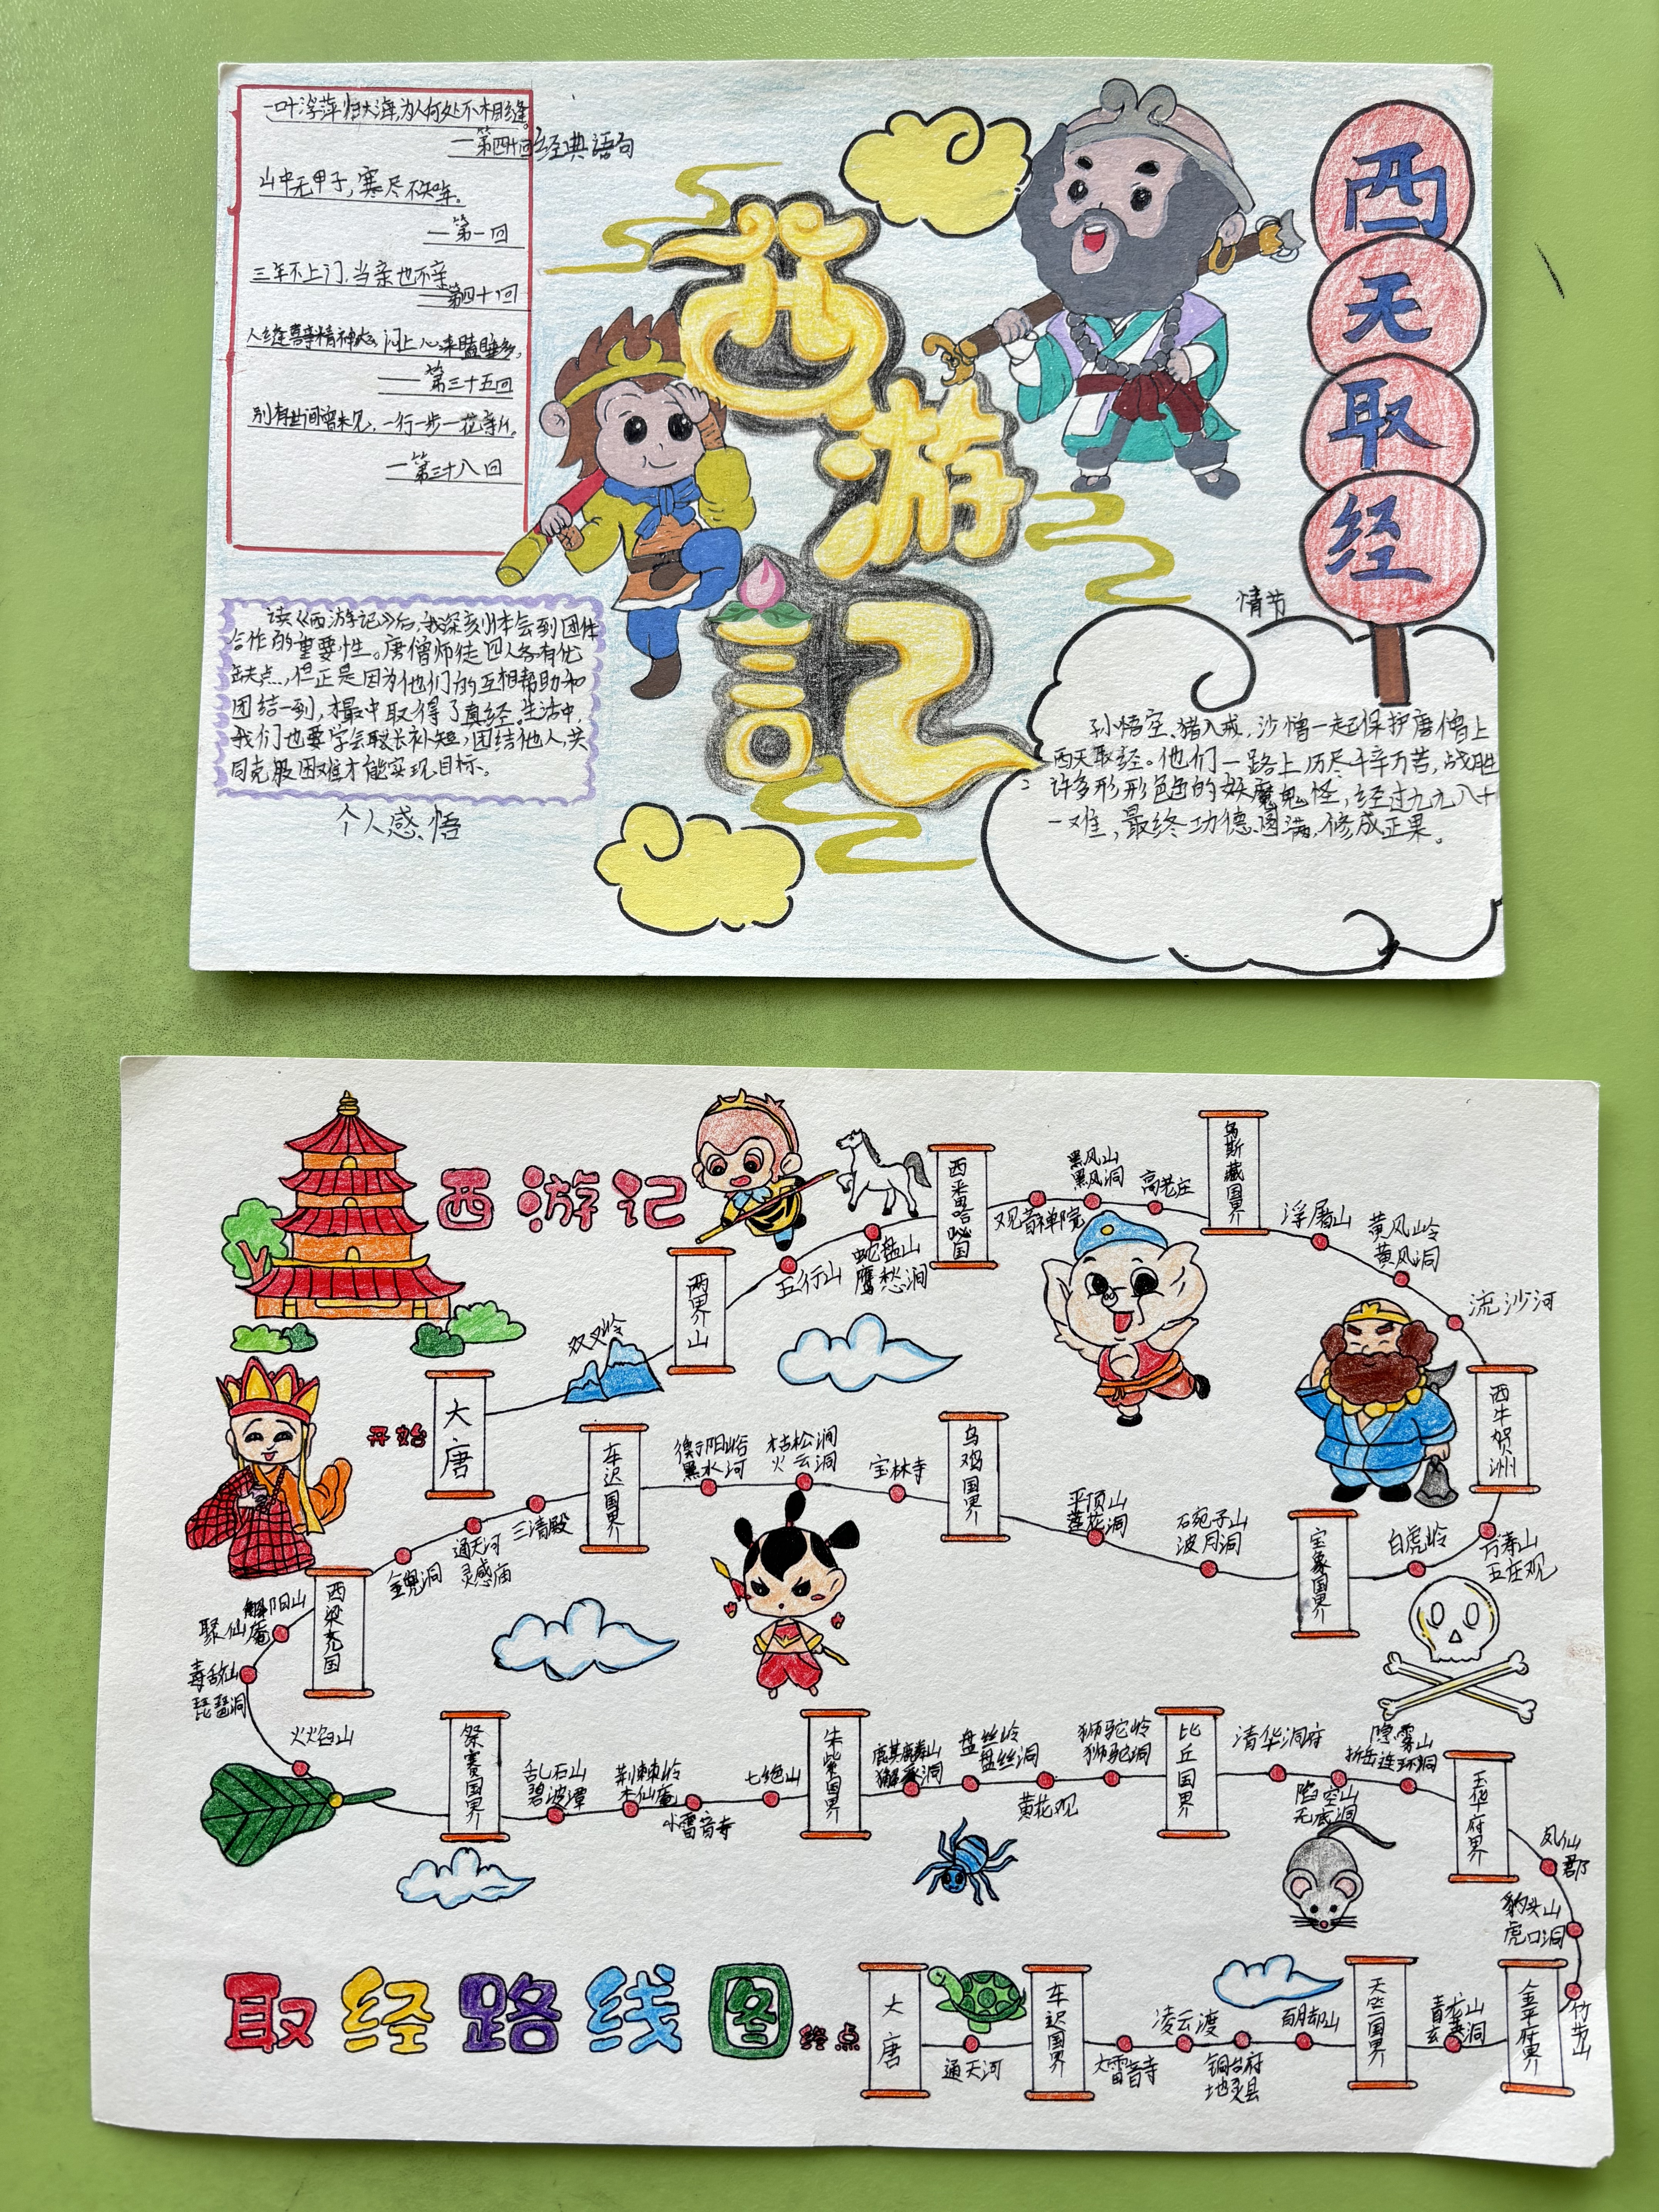 一叶浮萍归大海,为人何处不相逢。
—第四十回
经典语句
山中无甲子,寒尽不知年。
—第一回
三年不上门,当亲也不亲
—第四十回
人逢喜事精神爽,闷上心来瞌睡多,
—第三十五回
别有世间曾未见,一行一步一花新。
—第三十八回
读《西游记》后,我深刻体会到团体
合作的重要性。唐僧师徒四人各有优
缺点,但正是因为他们的互相帮助和
团结一到,才最中取得了真经。生活中,
我们也要学会取长补短,团结他人,共
同克服困难才能实现目标。
个人感悟
西游記
西天取经
情节
孙悟空、猪八戒、沙憎一起保护唐僧上
西天取经。他们一路上历尽千辛万苦,战胜
许多形形色色的妖魔鬼怪,经过九九八十
一难,最终功德圆满,修成正果。
西游记
开始
大唐
双叉岭
两界山
五行山
蛇盘山
鹰愁涧
西番哈咇国
观音禅院
黑风山
黑风洞
高老庄
乌斯藏国界
浮屠山
黄风岭
黄风洞
流沙河
西牛贺洲
万寿山
五庄观
白虎岭
宝象国界
石宛子山
波月洞
平顶山
莲花洞
乌鸡国界
宝林寺
枯松涧
火云洞
衡阳峪
黑水河
车迟国界
三清殿
通天河
灵感庙
金兜洞
西梁国
解阳山
聚仙庵
毒敌山
琵琶洞
火焰山
祭赛国界
乱石山
碧波潭
荆棘岭
木仙庵
小雷音寺
七绝山
朱紫国界
麒麟山
獬豸洞
盘丝岭
盘丝洞
黄花观
狮驼岭
狮驼洞
比丘国界
清华洞府
陷空山
无底洞
隐雾山
折岳连环洞
玉华府界
凤仙郡
豹头山
虎口洞
竹节山
金平府界
青龙山
玄英洞
天竺国界
百脚山
铜台府
地灵县
凌云渡
大雷音寺
车迟国界
通天河
大唐
终点
取经路线图